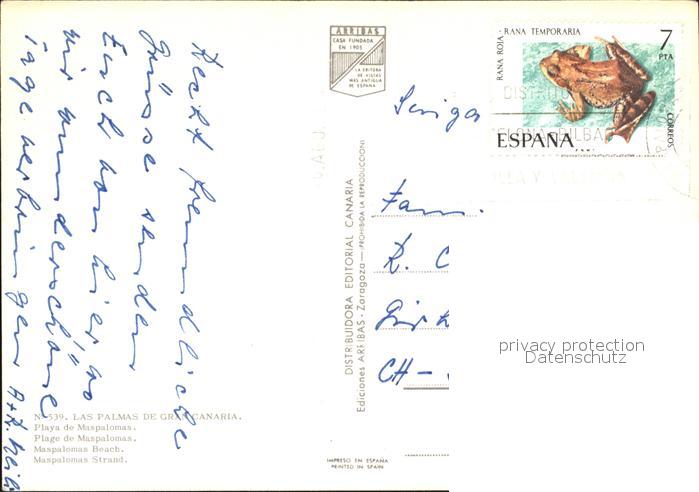 ARRIBAS
CASA FUNDADA
EN 1905
LA EDITORA
DE VISTAS
MAS ANTIGUA
DE ESPAÑA
RANA ROJA · RANA TEMPORARIA
7
PTA
CORREOS
ESPAÑA
Recht freundliche
Grüsse senden
Euch von hier wo
wir wunderschöne
Tage verbringen
Fam.
R. C
CH -
DISTRIBUIDORA EDITORIAL CANARIA
Ediciones ARRIBAS - Zaragoza - (PROHIBIDA LA REPRODUCCION)
privacy protection
Datenschutz
N.º 539. LAS PALMAS DE GRAN CANARIA.
Playa de Maspalomas.
Plage de Maspalomas.
Maspalomas Beach.
Maspalomas Strand.
IMPRESO EN ESPAÑA
PRINTED IN SPAIN